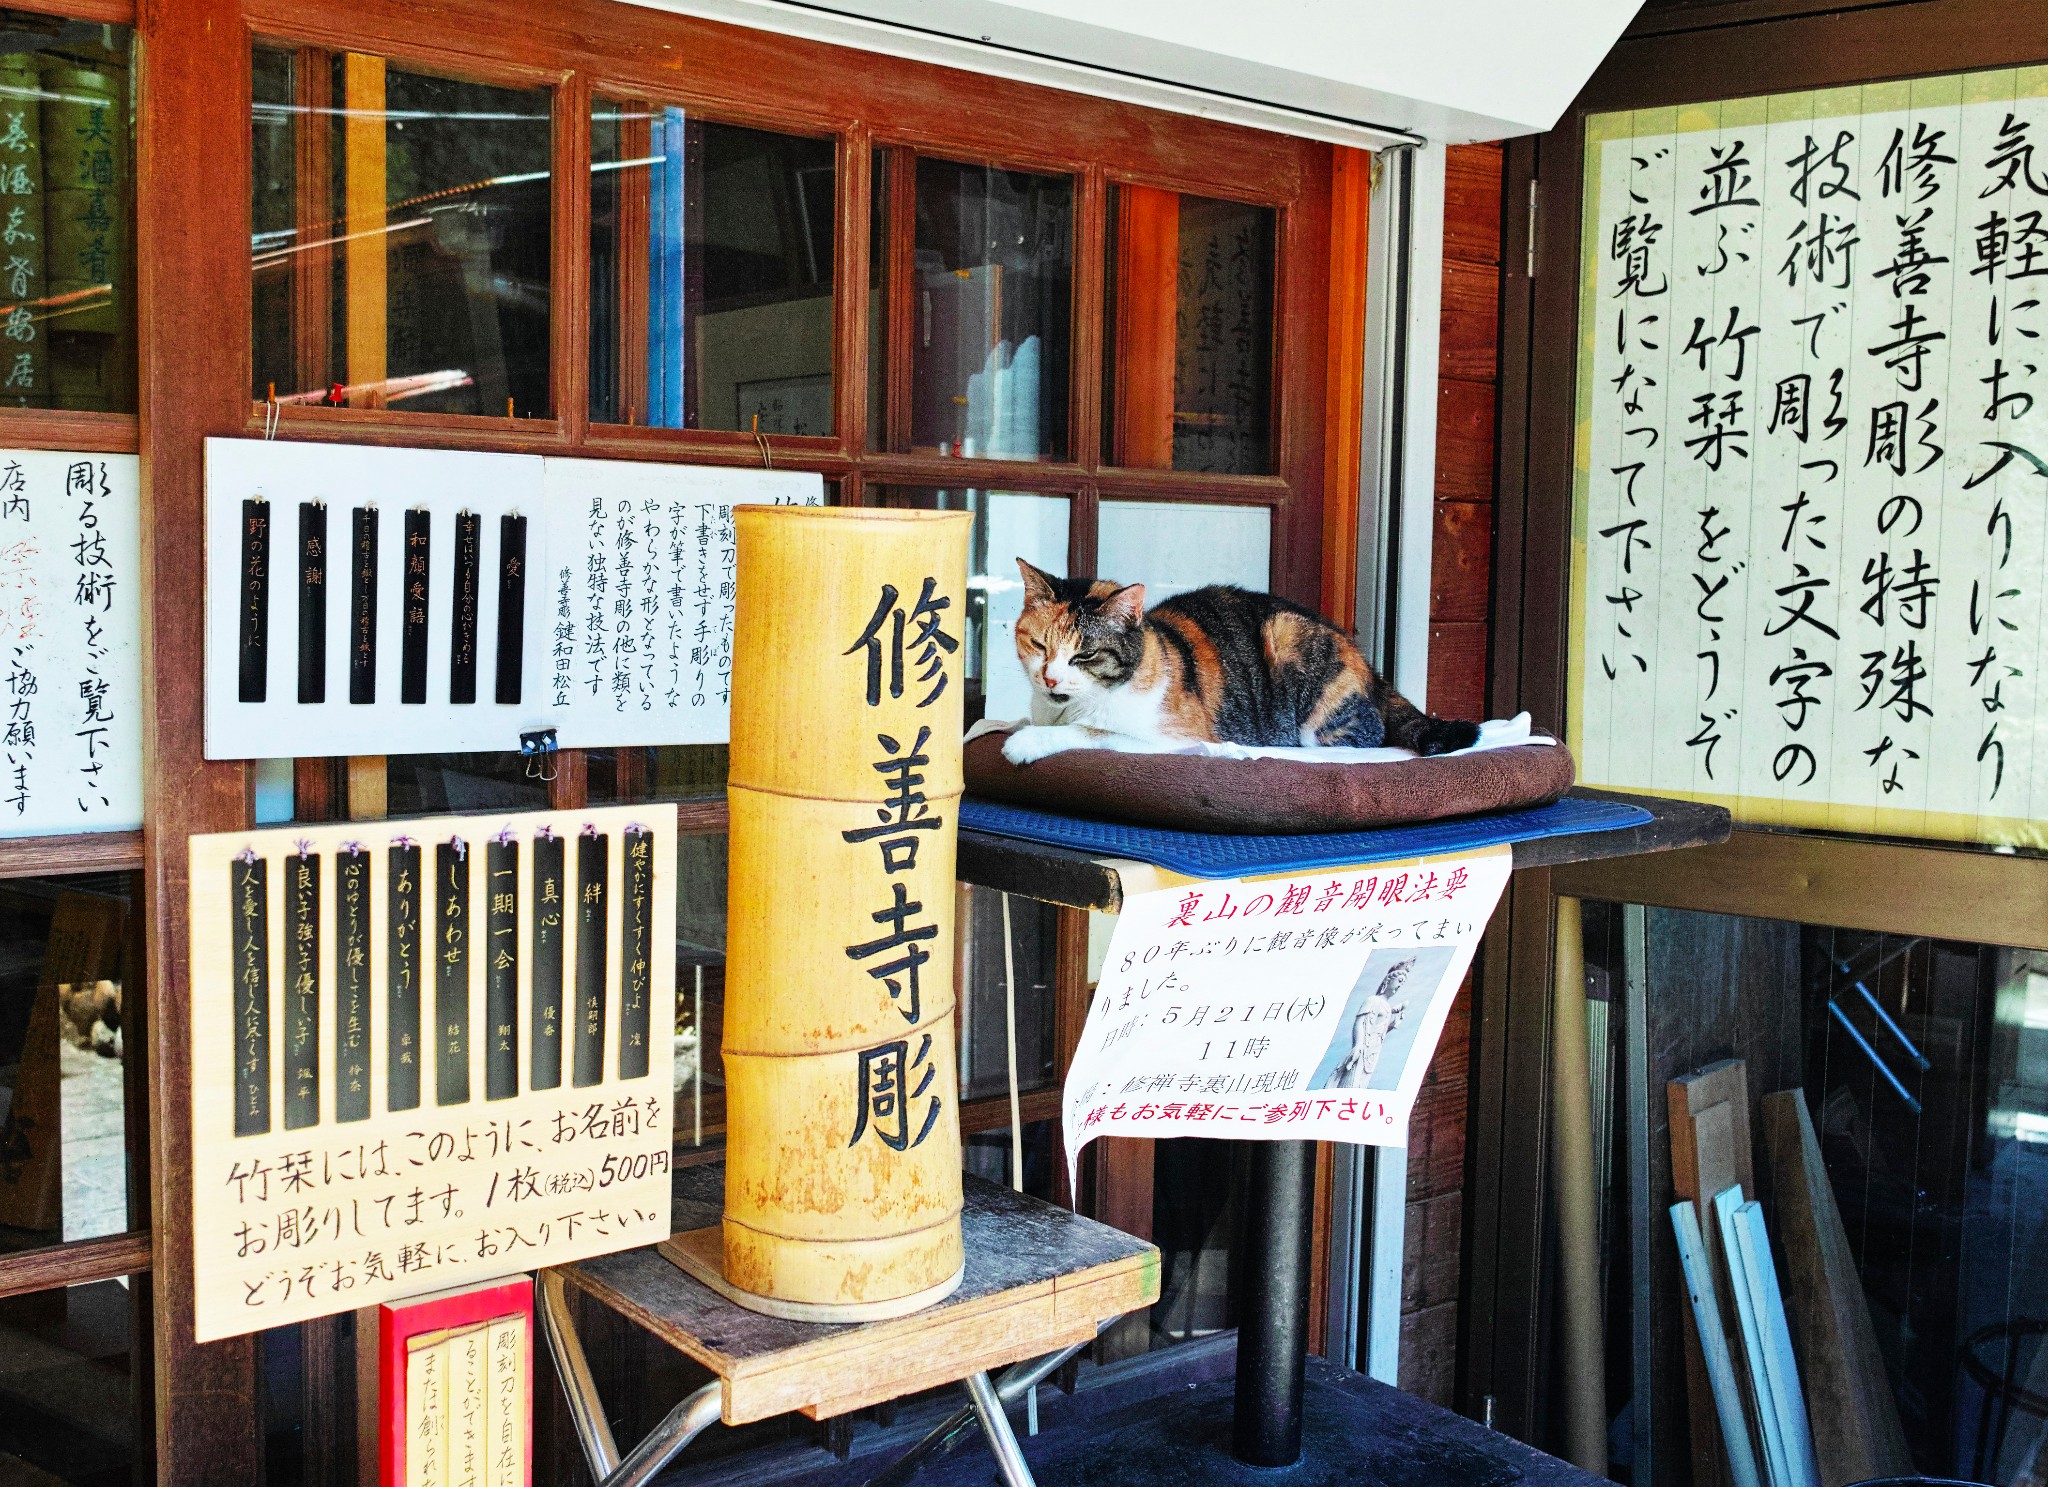 気軽にお入りになり
修善寺彫の特殊な
技術で彫った文字の
並ぶ竹栞をどうぞ
ご覧になって下さい
修善寺彫
裏山の観音開眼法要
80年ぶりに観音像が戻ってまい
りました。
日時:5月21日(木)
11時
:修禅寺裏山現地
様もお気軽にご参列下さい。
彫刻刀で彫ったものです
下書きをせず手彫りの
字が筆で書いたような
やわらかな形となっている
のが修善寺彫の他に類を
見ない独特な技法です
修善寺彫 鍵和田松丘
愛
幸せはいつも自分の心がきめる
和顔愛語
千日の稽古を鍛とし万日の稽古を錬とす
感謝
野の花のように
健やかにすくすく伸びよ 凜
絆 慎嗣郎
真心 優香
一期一会 翔太
しあわせ 結花
ありがとう 卓哉
心のゆとりが優しさを生む 怜奈
良い子強い子優しい子 颯平
人を愛し人を信じ人に尽くす ひとみ
竹栞には、このように、お名前を
お彫りしてます。1枚(税込)500円
どうぞお気軽に、お入り下さい。
彫刻刀を自在に
ることができます
または創られた
彫る技術をご覧下さい
店内
ご協力願います
美酒嘉肴
美酒嘉肴安居